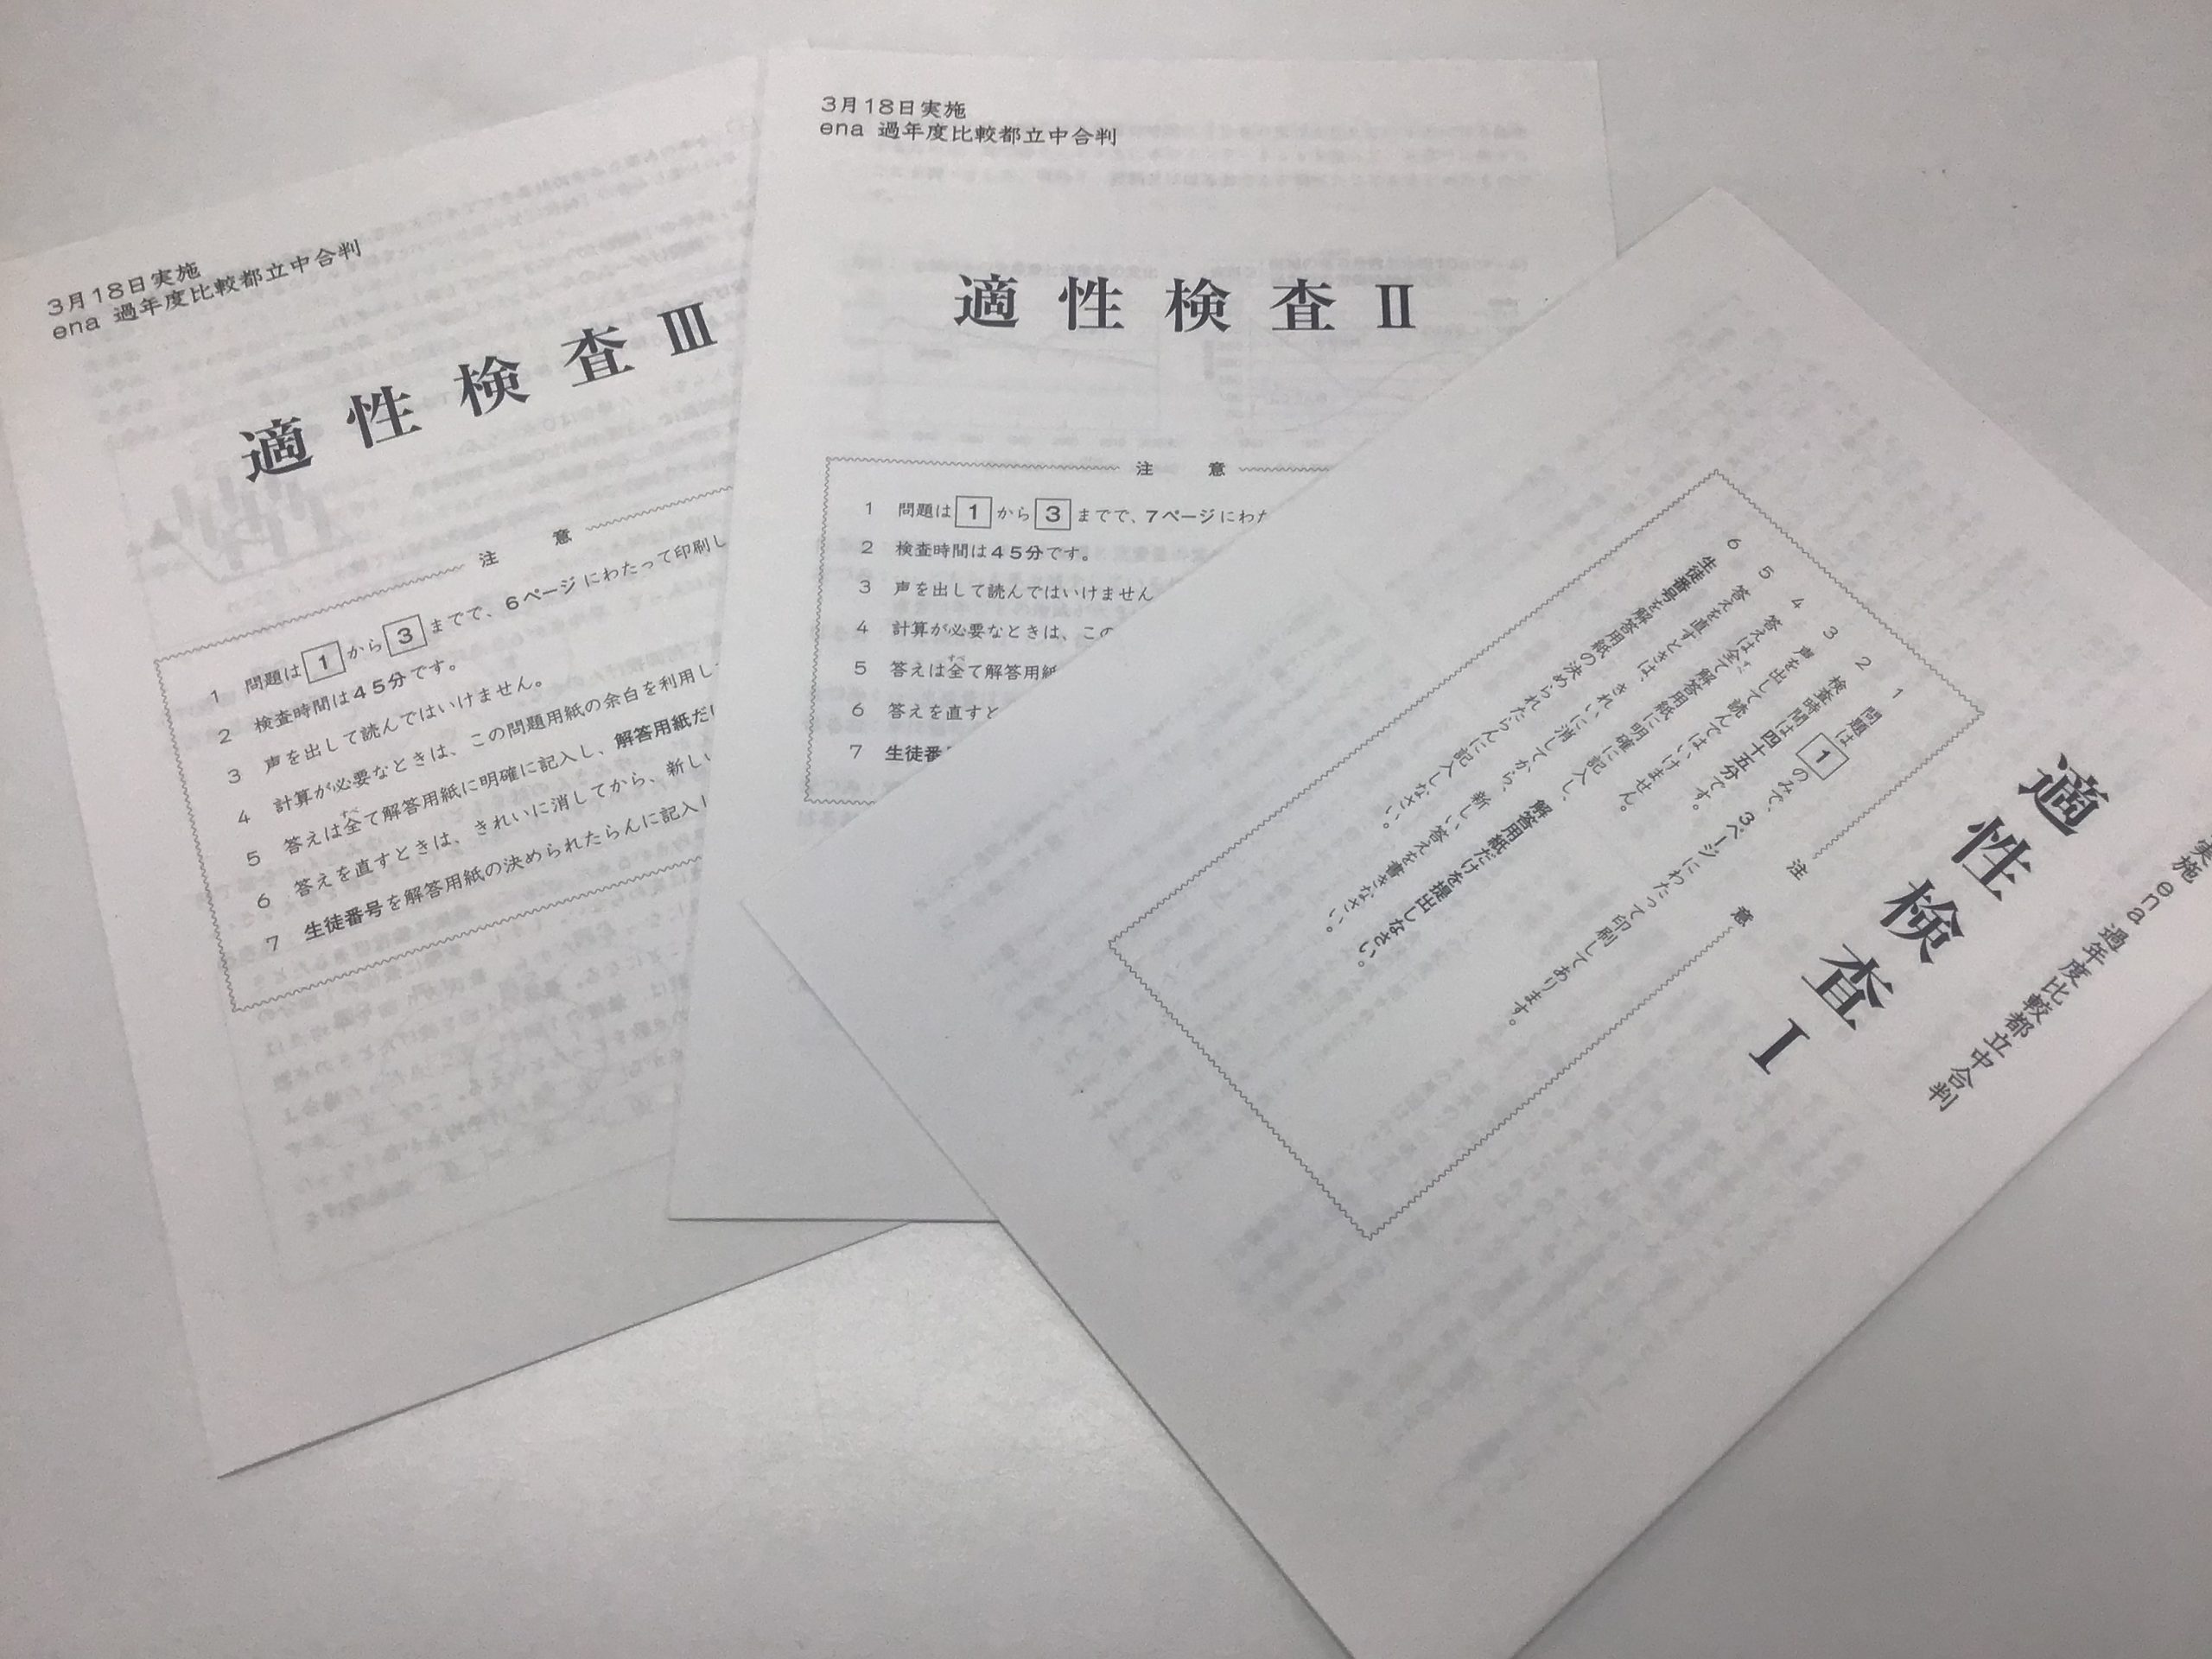 3月18日実施
ena 過年度比較都立中合判
適性検査Ⅲ
注 意
1 問題は1から3までで、6ページにわたって印刷し
2 検査時間は45分です。
3 声を出して読んではいけません。
4 計算が必要なときは、この問題用紙の余白を利用し
5 答えは全て解答用紙に明確に記入し、解答用紙だけ
6 答えを直すときは、きれいに消してから、新しい
7 生徒番号を解答用紙の決められたらんに記入し
3月18日実施
ena 過年度比較都立中合判
適性検査Ⅱ
注 意
1 問題は1から3までで、7ページにわた
2 検査時間は45分です。
3 声を出して読んではいけません
4 計算が必要なときは、この
5 答えは全て解答用紙
6 答えを直すと
7 生徒番
実施 ena 過年度比較都立中合判
適性検査Ⅰ
注 意
1 問題は1のみで、3ページにわたって印刷してあります。
2 検査時間は四十五分です。
3 声を出して読んではいけません。
4 答えは全て解答用紙に明確に記入し、解答用紙だけを提出しなさい。
5 答えを直すときは、きれいに消してから、新しい答えを書きなさい。
6 生徒番号を解答用紙の決められたらんに記入しなさい。